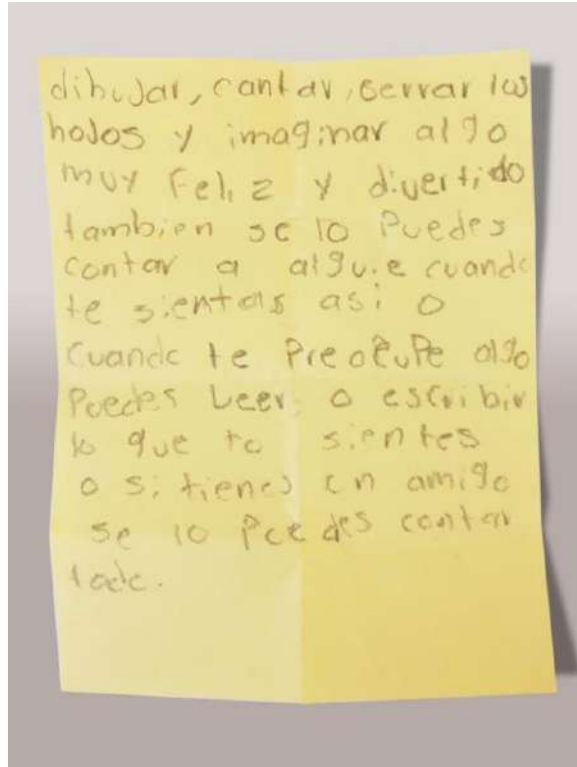 dibujar, cantar, serrar los
hojos y imaginar algo
muy Feliz y divertido
tambien se lo Puedes
contar a alguie cuando
te sientas asi o
Cuando te Preocupe algo
Puedes Leer, o escribir
lo que tu sientes
o si tienes un amigo
se lo Puedes contar
todo.